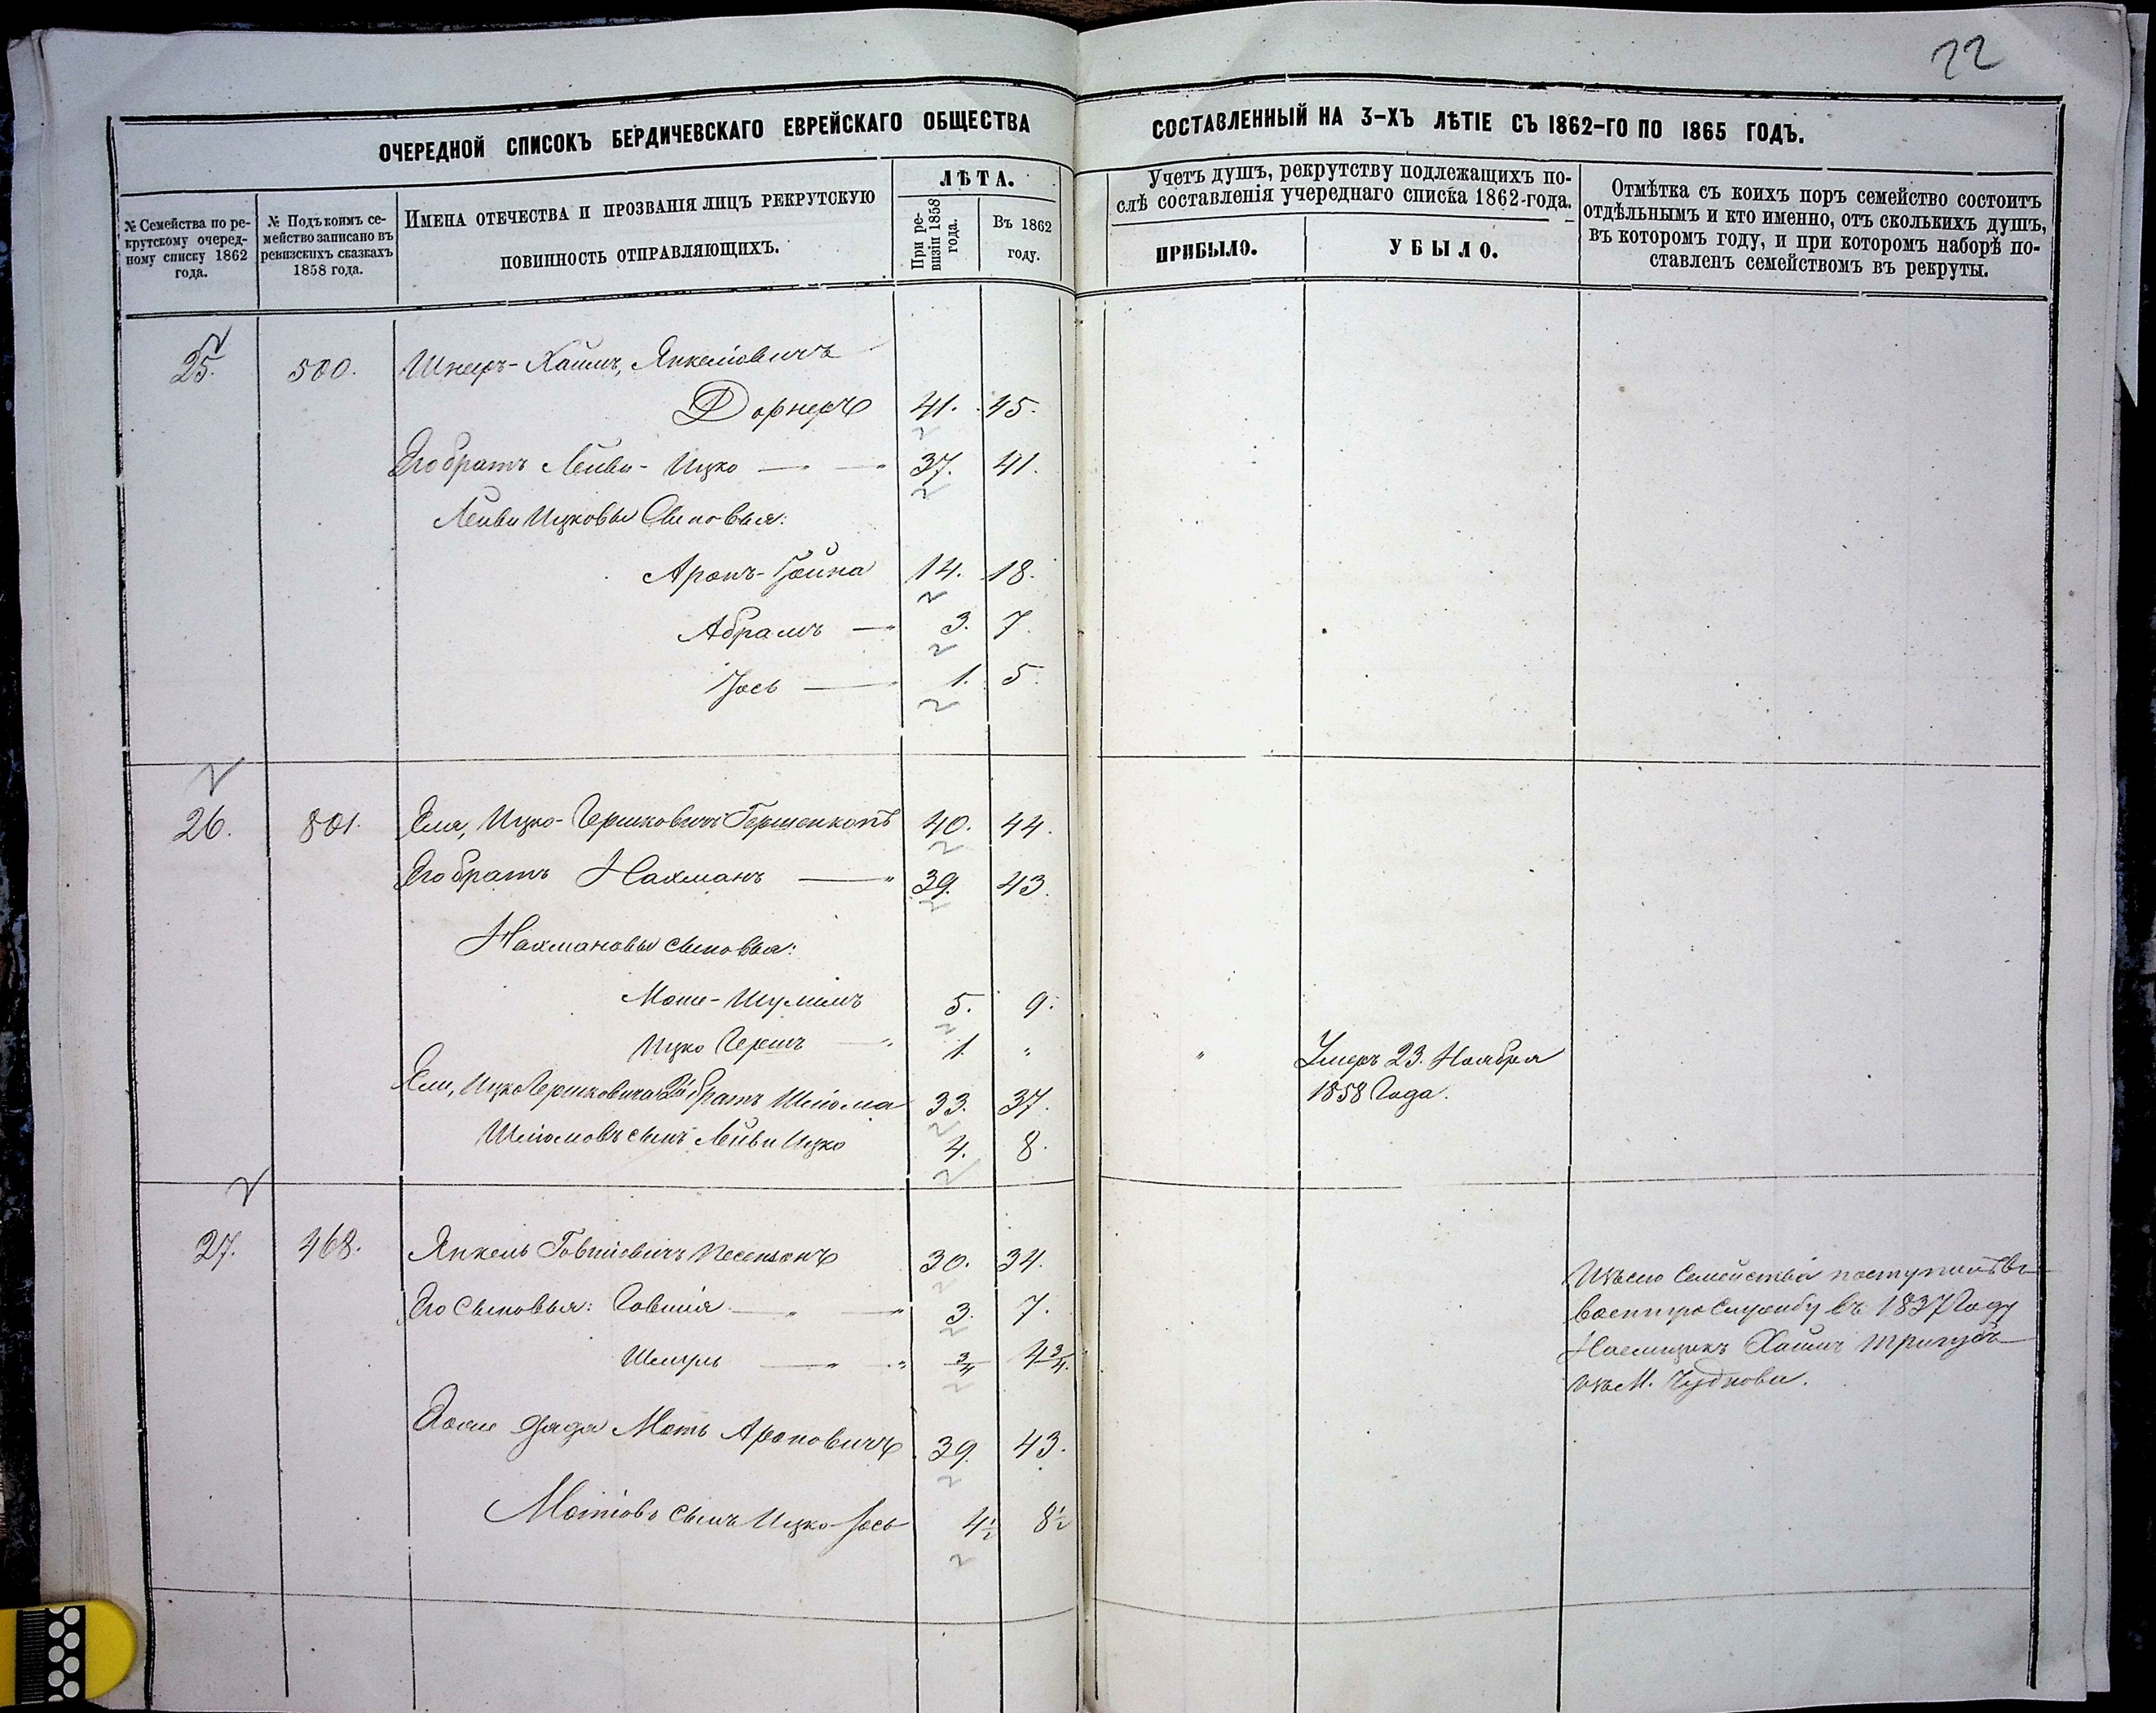 22
ОЧЕРЕДНОЙ СПИСОКЪ БЕРДИЧЕВСКАГО ЕВРЕЙСКАГО ОБЩЕСТВА
СОСТАВЛЕННЫЙ НА 3-ХЪ ЛѢТІЕ СЪ 1862-ГО ПО 1865 ГОДЪ.
№ Семейства по ре-
крутскому очеред-
ному списку 1862
года.
№ Подъ коимъ се-
мейство записано въ
ревизскихъ сказкахъ
1858 года.
ИМЕНА ОТЕЧЕСТВА И ПРОЗВАНІЯ ЛИЦЪ РЕКРУТСКУЮ
ПОВИННОСТЬ ОТПРАВЛЯЮЩИХЪ.
ЛѢТА.
При ре-
визіи 1858
года.
Въ 1862
году.
Учетъ душъ, рекрутству подлежащихъ по-
слѣ составленія учереднаго списка 1862-года.
ПРИБЫЛО.
УБЫЛО.
Отмѣтка съ коихъ поръ семейство состоитъ
отдѣльнымъ и кто именно, отъ сколькихъ душъ,
въ котором году, и при котором наборѣ по-
ставленъ семейством въ рекруты.
25. 500. Шнеръ-Хаимъ, Янкеліовичъ
Дорнеръ 41. 45.
Его братъ Лейви-Ицко — — " 37. 41.
Лейви Ицковы Сыновья:
Аронъ-Іойна 14. 18.
Абрамъ — " 3. 7.
Іось — " 1. 5.
26. 801. Еля, Ицко-Гершковичъ Гершенкопъ 40. 44.
Его братъ Нахманъ — " 39. 43.
Нахмановы сыновья:
Моше-Шулимъ 5. 9.
Ицко Гершъ — " 1. " " Умеръ 23. Ноября
1858 Года.
Ели, Ицко Гершковича 2й братъ Шліома 33. 37.
Шліомовъ сынъ Лейви Ицко 4. 8.
27. 468. Янкель Говшіовичъ 30. 34.
Его Сыновья: Говшія — " — " 3. 7.
Шмуль — " — " 3/4 4 3/4.
Изъ сего Семейства поступилъ въ
военную Службу въ 1837 Году
Наемщикъ Хаимъ
изъ М. Чуднова.
дядя Моть Ароновичъ 39. 43.
Мотіовъ сынъ Ицко-Іось 4½ 8½